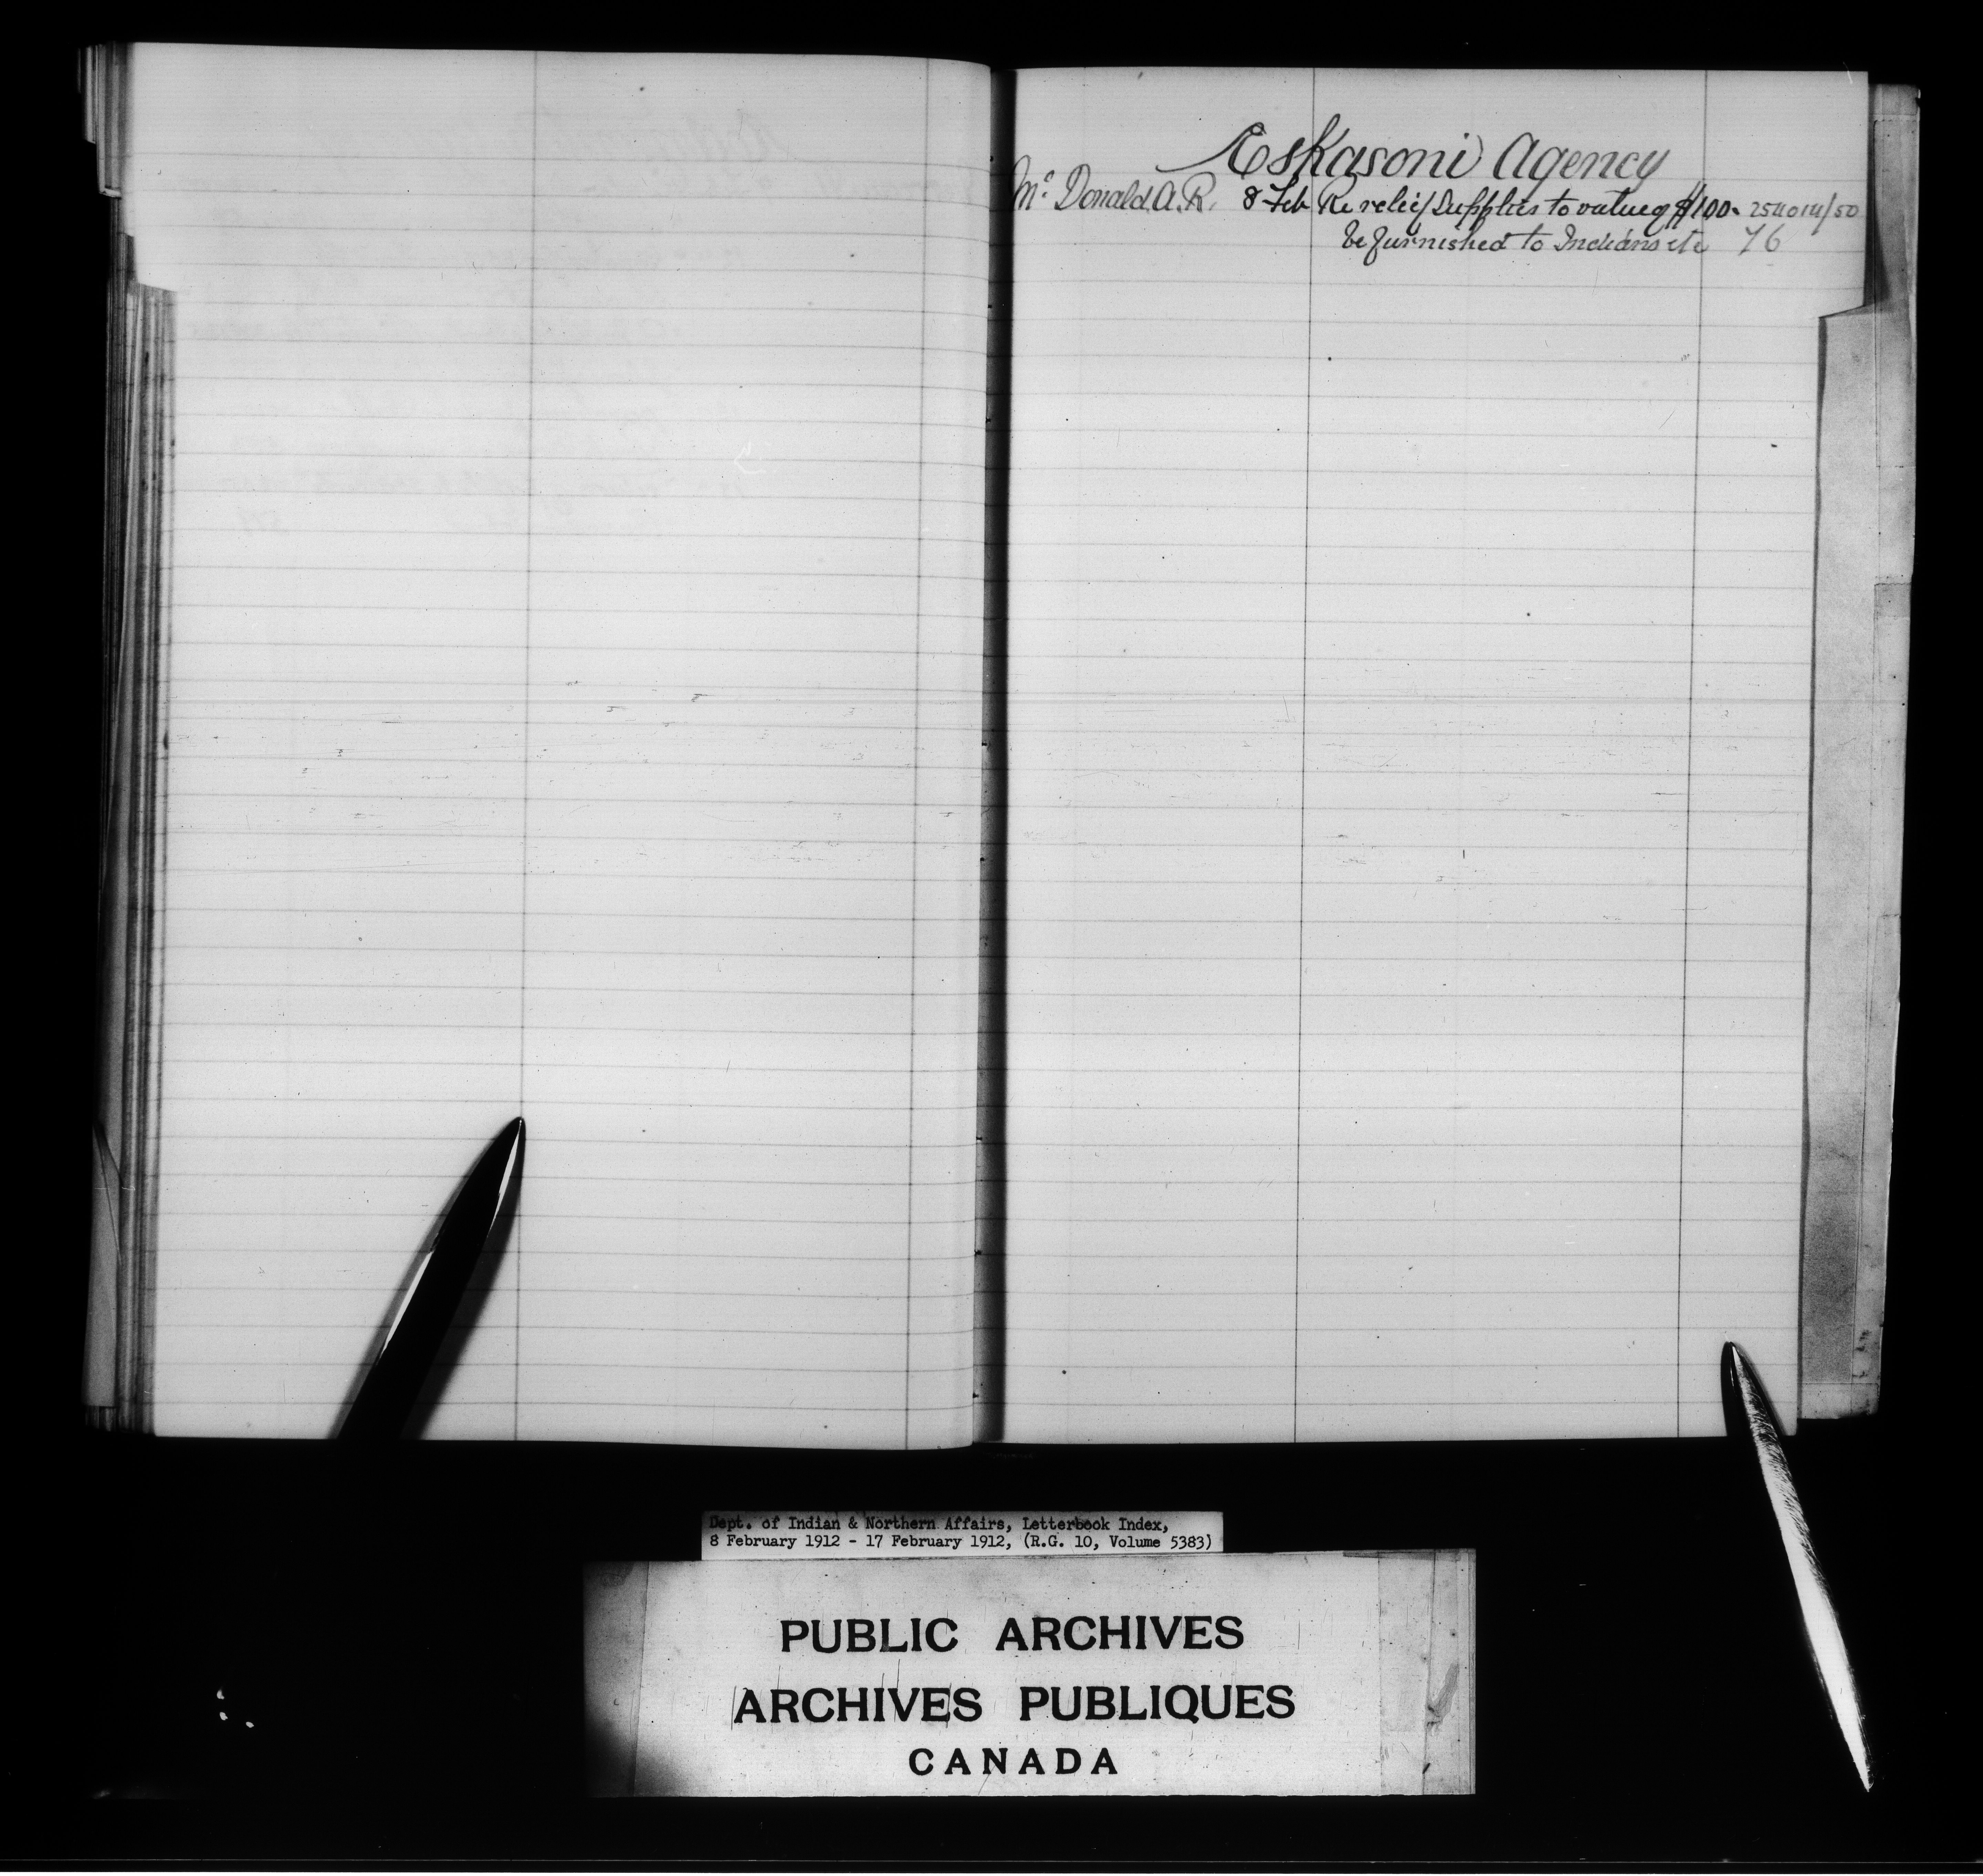 Eskasoni Agency
Mc Donald A.R. 8 Feb Re relief supplies to value of $100. 254014/50
be furnished to Indians etc 76
Dept. of Indian & Northern Affairs, Letterbook Index,
8 February 1912 - 17 February 1912, (R.G. 10, Volume 5383)
PUBLIC ARCHIVES
ARCHIVES PUBLIQUES
CANADA